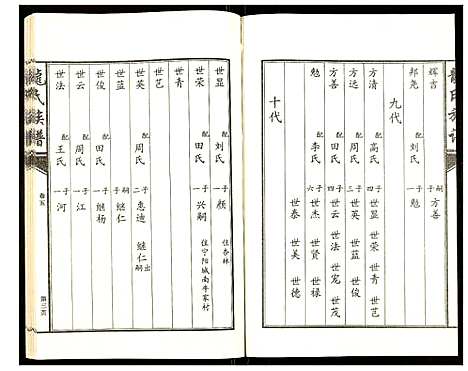 龍氏族譜
辉吉 嗣子 方善
邦尧 配刘氏 子一 勉
九代
方清 配高氏 子四 世显 世荣 世青 世艺
方远 配周氏 子三 世英 世蓝 世俊
方善 配田氏 子四 世云 世法 世宠 世茂
勉 配李氏 子六 世杰 世贤 世禄
世泰 世美 世德
十代
世显 配刘氏 子一 颜 住杏林
世荣 配田氏 子一 兴嗣 住宁阳城南牛家村
世青
世艺
世英 配周氏 子二 惠迪 继仁出嗣
世蓝 嗣子 继仁
世俊 配田氏 子一 继杨
世云 配周氏 子一 江
世法 配王氏 子一 河
龍氏族譜
卷五
第三页